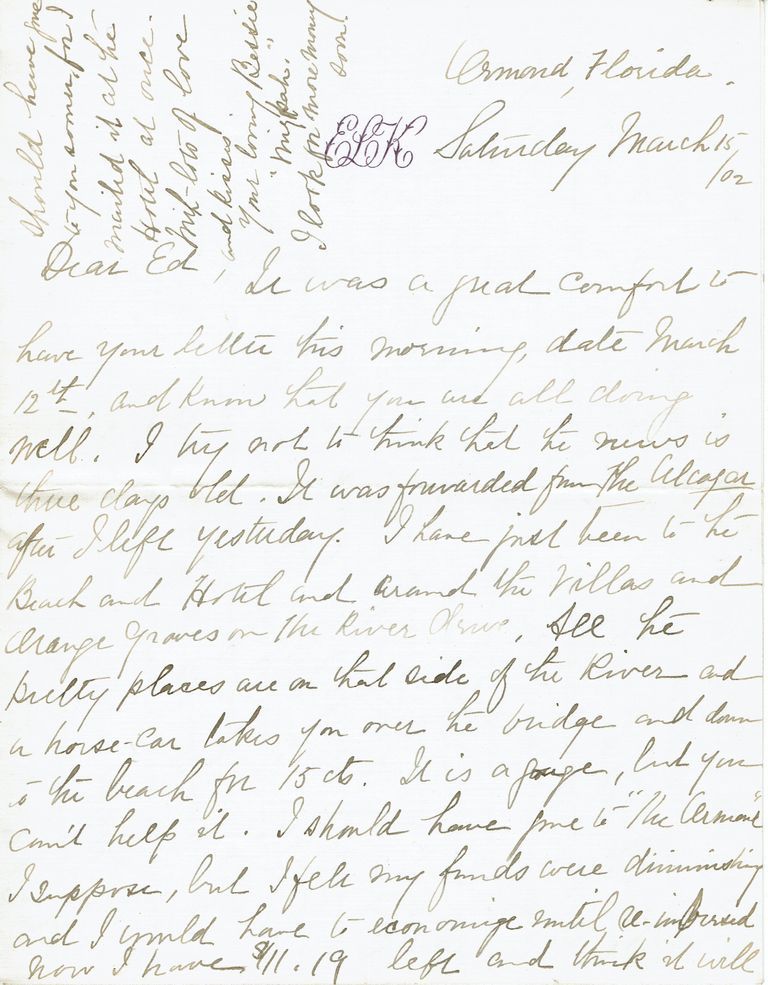 Ormond, Florida.
ELK
Saturday March 15/02
Dear Ed,
It was a great comfort to
have your letter this morning, date March
12th, and know that you are all doing
well. I try not to think that the news is
three days old. It was forwarded from The Alcazar
after I left yesterday. I have just been to the
Beach and Hotel and around the Villas and
Orange groves on the River Drive. All the
pretty places are on that side of the River and
a horse-car takes you over the bridge and down
to the beach for 15 cts. It is a gouge, but you
can't help it. I should have gone to "The Ormond"
I suppose, but I felt my funds were diminishing
and I would have to economize until re-imbursed
now I have $11.19 left and think it will
should have gone
to you sooner, for I
mailed it at the
Hotel at once.
With lots of love
and kisses
Your loving Bessie
"Mizpah."
I look for more money
soon.